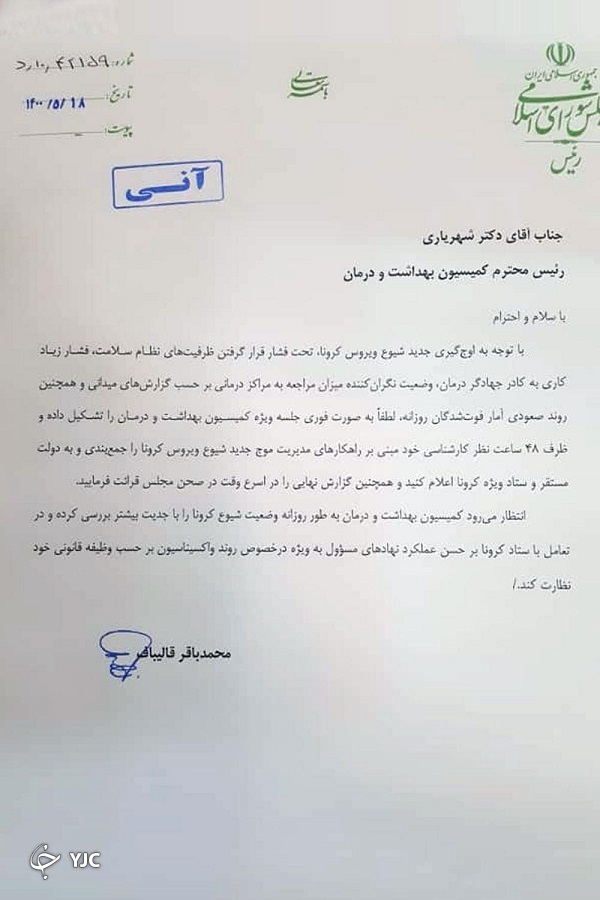 جمهوری اسلامی ایران
مجلس شورای اسلامی
رئیس
باسمه تعالی
شماره: ۴۲۱۵۹
تاریخ: ۱۴۰۰/۵/۱۸
پیوست:
آنی
جناب آقای دکتر شهریاری
رئیس محترم کمیسیون بهداشت و درمان
با سلام و احترام
با توجه به اوج‌گیری جدید شیوع ویروس کرونا، تحت فشار قرار گرفتن ظرفیت‌های نظام سلامت، فشار زیاد
کاری به کادر جهادگر درمان، وضعیت نگران‌کننده میزان مراجعه به مراکز درمانی بر حسب گزارش‌های میدانی و همچنین
روند صعودی آمار فوت‌شدگان روزانه، لطفاً به صورت فوری جلسه ویژه کمیسیون بهداشت و درمان را تشکیل داده و
ظرف ۴۸ ساعت نظر کارشناسی خود مبنی بر راهکارهای مدیریت موج جدید شیوع ویروس کرونا را جمع‌بندی و به دولت
مستقر و ستاد ویژه کرونا اعلام کنید و همچنین گزارش نهایی را در اسرع وقت در صحن مجلس قرائت فرمایید.
انتظار می‌رود کمیسیون بهداشت و درمان به طور روزانه وضعیت شیوع کرونا را با جدیت بیشتر بررسی کرده و در
تعامل با ستاد کرونا بر حسن عملکرد نهادهای مسؤول به ویژه درخصوص روند واکسیناسیون بر حسب وظیفه قانونی خود
نظارت کند./
محمدباقر قالیباف
YJC